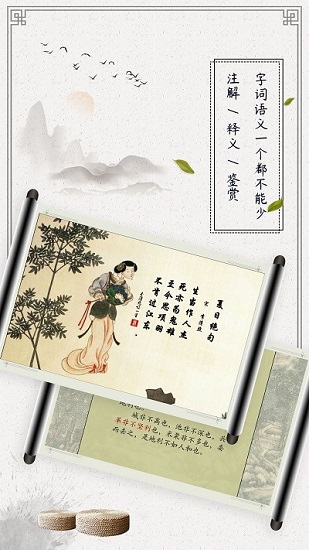 字词语义一个都不能少
注解/释义/鉴赏
夏日绝句
宋 李清照
生当作人杰
死亦为鬼雄
至今思项羽
不肯过江东
地利也。
城非不高也，池非不深也，兵
革非不坚利也，米粟非不多也，委
而去之，是地利不如人和也。